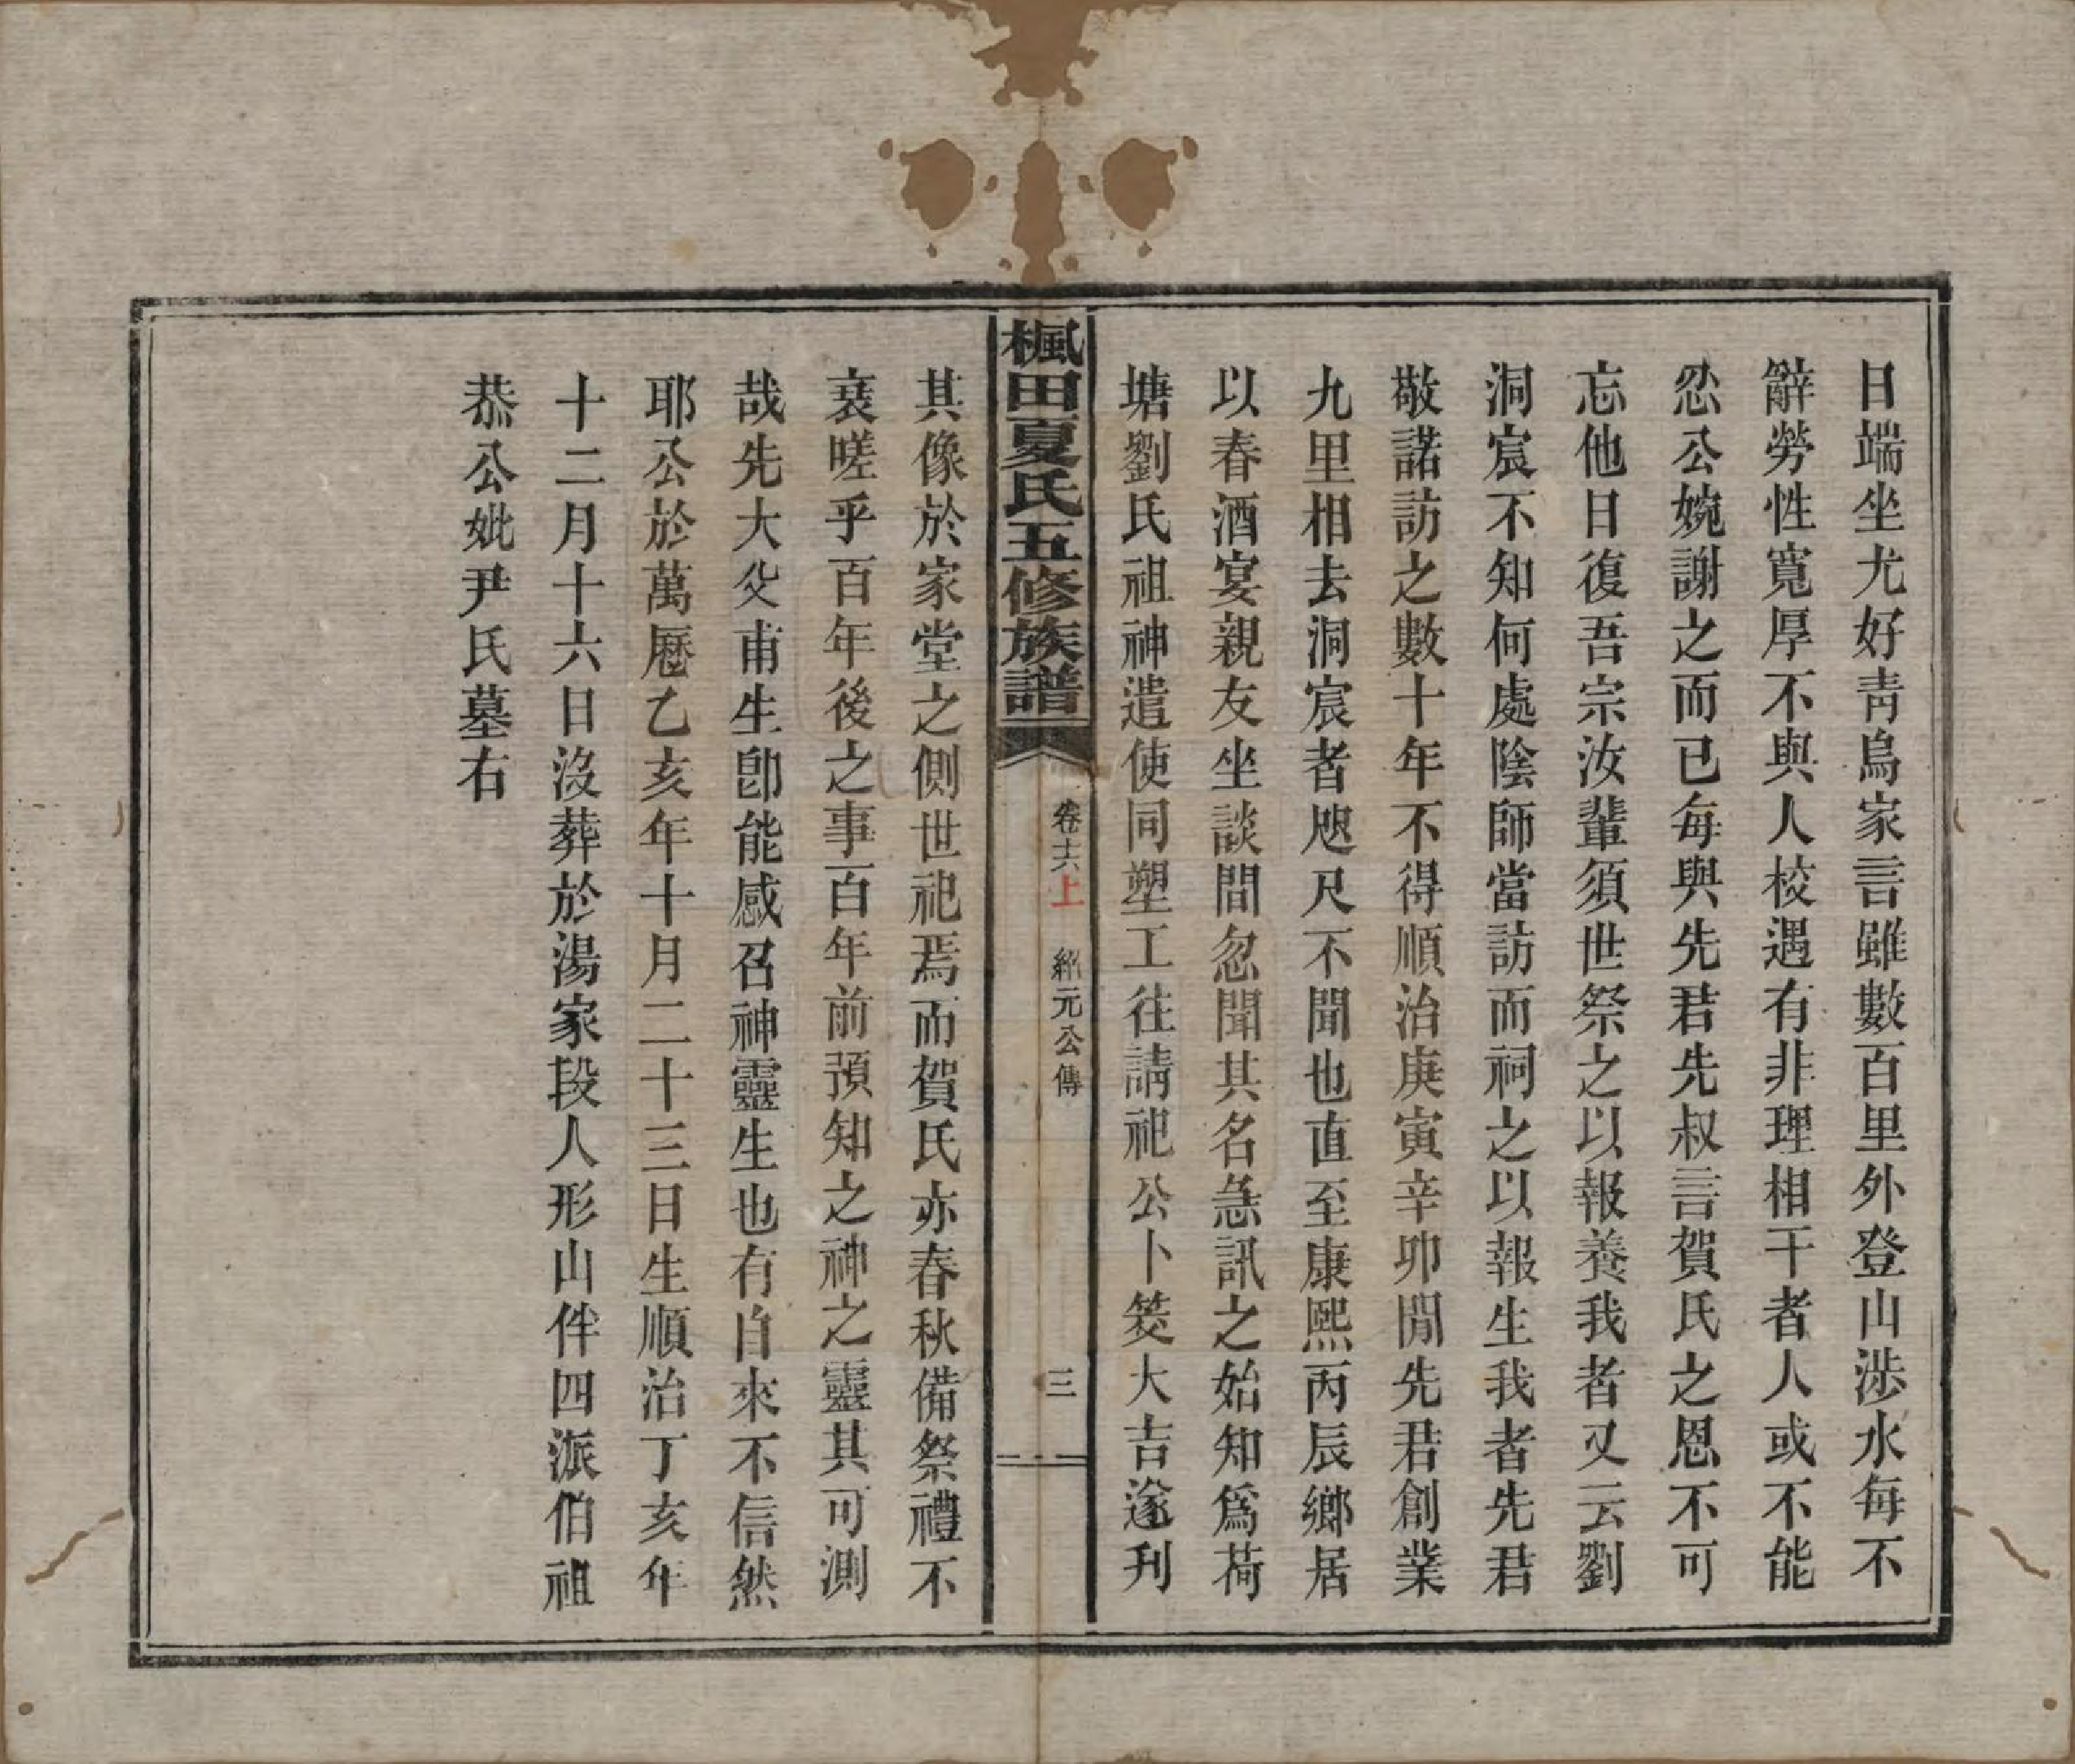 日端坐尤好靑烏家言雖數百里外登山涉水每不
辭勞性寬厚不與人校遇有非理相干者人或不能
忍公婉謝之而已每與先君先叔言賀氏之恩不可
忘他日復吾宗汝輩須世祭之以報養我者又云劉
洞宸不知何處陰師當訪而祠之以報生我者先君
敬諾訪之數十年不得順治庚寅辛卯閒先君創業
九里相去洞宸者咫尺不聞也直至康熙丙辰鄉居
以春酒宴親友坐談間忽聞其名急訊之始知爲荷
塘劉氏祖神遣使同塑工往請祀公卜筊大吉遂刋
楓田夏氏五修族譜
卷十六上 紹元公傳
三
其像於家堂之側世祀焉而賀氏亦春秋備祭禮不
衰嗟乎百年後之事百年前預知之神之靈其可測
哉先大父甫生卽能感召神靈生也有自來不信然
耶公於萬曆乙亥年十月二十三日生順治丁亥年
十二月十六日沒葬於湯家段人形山伴四派伯祖
恭公妣尹氏墓右